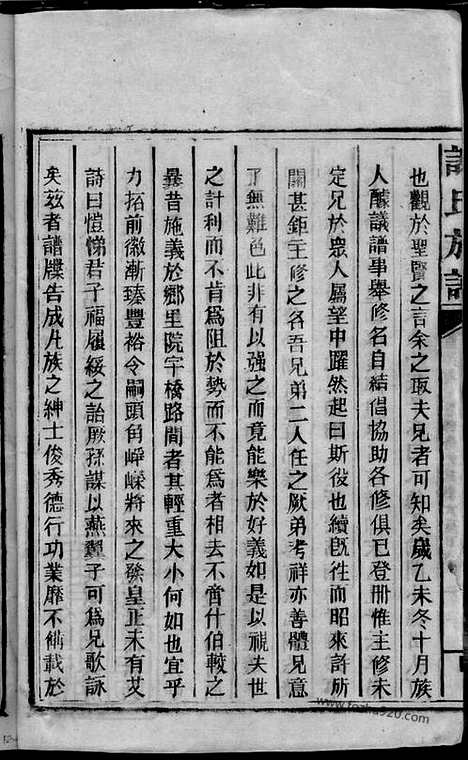 也觀於聖賢之言余之取夫兄者可知矣歲乙未冬十月族
人醵議譜事舉修名自結倡協助各修俱已登册惟主修未
定兄於眾人屬望中躍然起曰斯役也續旣往而昭來許所
關甚鉅主修之名吾兄弟二人任之厥弟考祥亦善體兄意
了無難色此非有以强之而竟能樂於好義如是以視夫世
之計利而不肯爲阻於勢而不能爲者相去不啻什伯較之
曩昔施義於鄉里院宇橋路間者其輕重大小何如也宜乎
力拓前徽漸臻豐裕令嗣頭角崢嶸將來之發皇正未有艾
詩曰愷悌君子福履綏之詒厥孫謀以燕翼子可爲兄歌詠
矣茲者譜牒告成凡族之紳士俊秀德行功業靡不備載於
氏族譜
www.fozhu920.com